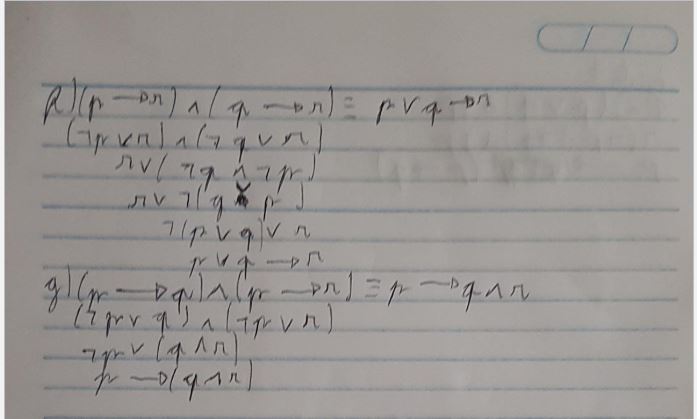 f)(p → r) ∧ (q → r) ≡ p ∨ q → r
(¬p ∨ r) ∧ (¬q ∨ r)
r ∨ (¬q ∧ ¬p)
r ∨ ¬(q ∨ p)
¬(p ∨ q) ∨ r
p ∨ q → r
g)(p → q) ∧ (p → r) ≡ p → q ∧ r
(¬p ∨ q) ∧ (¬p ∨ r)
¬p ∨ (q ∧ r)
p → (q ∧ r)